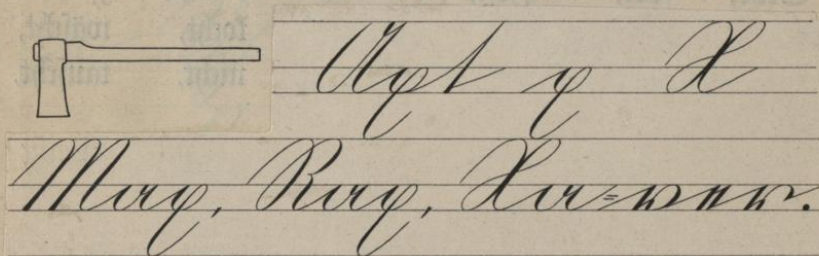 Axt x X
Max, Rax, Xa=ver.